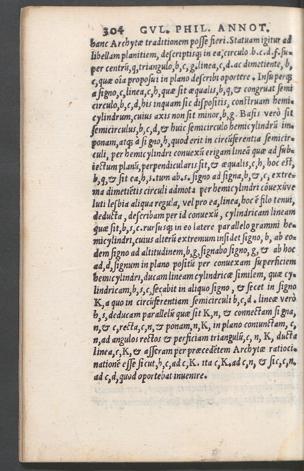 304 GVL. PHIL. ANNOT.
hanc Archytæ traditionem posse fieri. Statuam igitur ad
libellam planitiem, descriptisq; in ea, circulo b.c.d.f. su-
per centrū, q, triangulo, b, c, g, linea, c, d. ac dimetiente, b,
c, quæ oīa proposui in plano describi oportere. Insuperq;
a signo, c, linea, c, h, quæ sit æqualis, b, q, & congruat semi
circulo, b, c, d, his inquam sic dispositis, construam hemi-
cylindrum, cuius axis non sit minor, b, g. Basis verò sit
semicirculus, b, c, d, & huic semicirculo hemicylindrū im-
ponam, atq; à signo, h, quod erit in circūferentia semicir-
culi, per hemicylindri conuexū erigam lineā quæ ad sub-
iectum planū, perpendicularis sit, & æqualis, c, h, hoc est,
b, q, & sit ea, h, s. tum ab, s. signo ad signa, b, & c, extre-
ma dimetiētis circuli admota per hemicylindri cōuexū ve
luti lesbia aliqua regula, vel pro ea, linea, hoc ē filo tenui,
deducta, describam per id conuexū, cylindricam lineam
quæ sit, b, s, c. rursusq; in eo latere parallelogrammi he-
micylindri, cuius alterū extremum insidet signo, b, ab eo-
dem signo ad altitudinem, b, g, signabo signo, g, & ab hoc
ad, d, signum in plano positū per conuexam superficiem
hemicylindri, ducam lineam cylindricæ similem, quæ cy-
lindricam, b, s, c, secabit in aliquo signo, & secet in signo
K, a quo in circūferentiam semicirculi b, c, d. lineæ verò
h, s, deducam parallelū quæ sit K, n, & connectam signa,
n, & c, recta, c, n, & ponam, n, K, in plano coniunctam, c,
n, ad angulos rectos & perficiam triangulū, c, n, K, ducta
linea, c, K, & asseram per præcedētem Archytæ ratioci-
nationē esse sicut, b, c, ad c, K. ita c, K, ad c, n, & sic, c, n,
ad c, d, quod oportebat inuenire.